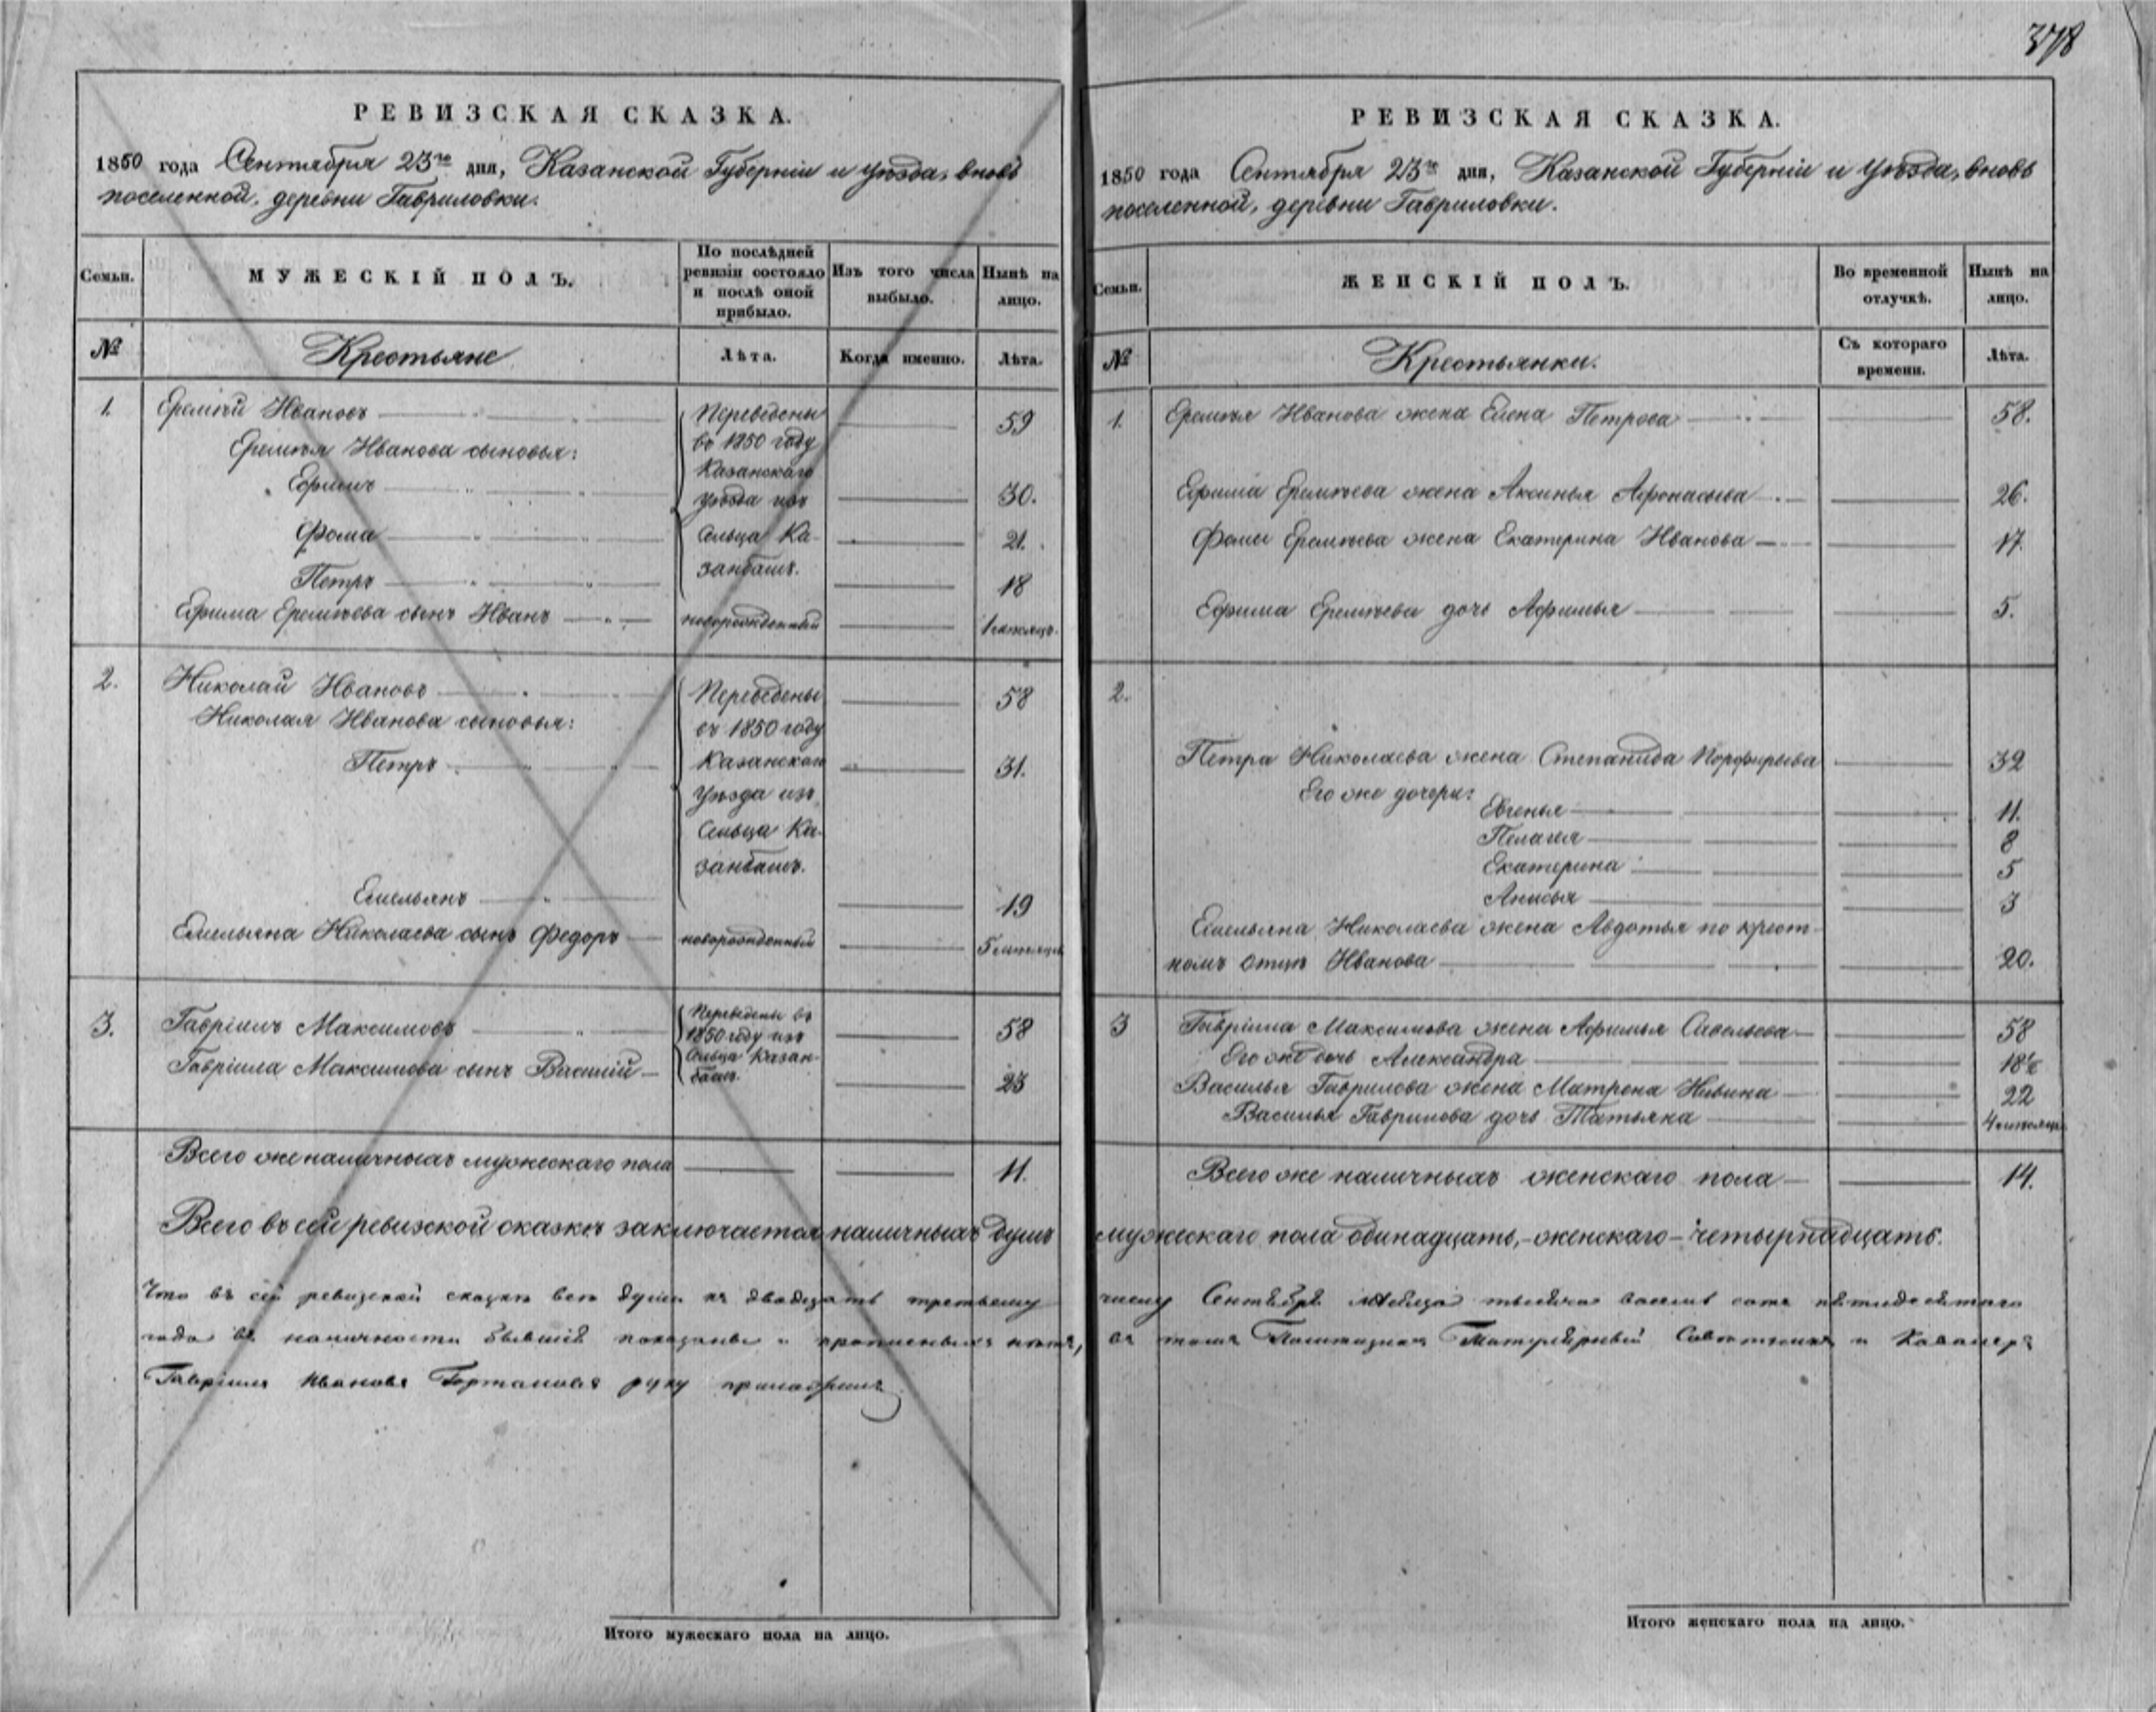 378
РЕВИЗСКАЯ СКАЗКА.
1850 года Сентября 23го дня, Казанской Губерніи и уѣзда, вновь
поселенной, деревни Гавриловки.
Семьи.
МУЖЕСКІЙ ПОЛЪ.
По послѣдней
ревизіи состояло
и послѣ оной
прибыло.
Изъ того числа
выбыло.
Нынѣ на
лицо.
№
Крестьяне
Лѣта.
Когда именно.
Лѣта.
1. Еремѣй Ивановъ 59
Еремѣя Иванова сыновья:
Ефимъ 30.
Фома 21.
Петръ 18
Переведены
въ 1850 году
Казанскаго
уѣзда изъ
Сельца Ка-
занбашъ.
Ефима Еремѣева сынъ Иванъ новорожденный 1 мѣсяцъ.
2. Николай Ивановъ 58
Николая Иванова сыновья:
Петръ 31.
Переведены
въ 1850 году
Казанскаго
Уѣзда изъ
Сельца Ка-
занбашъ.
Емельянъ 19
Емельяна Николаева сынъ Федоръ новорожденный 5 мѣсяцъ
3. Гавріилъ Максимовъ 58
Гавріила Максимова сынъ Василій 23
Переведены въ
1850 году изъ
Сельца Казан-
башъ.
Всего же наличныхъ мужескаго пола 11.
РЕВИЗСКАЯ СКАЗКА.
1850 года Сентября 23го дня, Казанской Губерніи и Уѣзда, вновь
поселенной, деревни Гавриловки.
Семьи.
ЖЕНСКІЙ ПОЛЪ.
Во временной
отлучкѣ.
Нынѣ на
лицо.
№
Крестьянки.
Съ котораго
времени.
Лѣта.
1. Еремѣя Иванова жена Елена Петрова 58.
Ефима Еремѣева жена Аксинья Афонасьева 26.
Фомы Еремѣева жена Екатерина Иванова 17.
Ефима Еремѣева дочь Афимья 5.
2.
Петра Николаева жена Степанида Порфирьева 32
Его же дочери:
Евгенья 11.
Пелагея 8
Екатерина 5
Анисья 3
Емельяна Николаева жена Авдотья по крест-
номъ отцѣ Иванова 20.
3 Гавріила Максимова жена Афимья Савельева 58
Его же дочь Александра 18½
Василья Гаврилова жена Матрена 22
Василья Гаврилова дочь Татьяна 4 мѣсяца
Всего же наличныхъ женскаго пола 14.
Всего въ сей ревизской сказкѣ заключается наличныхъ душъ мужескаго пола одинадцать, - женскаго - четырнадцать.
Что въ сей ревизской сказкѣ всѣ души къ двадцать третьему числу Сентября мѣсяца тысяча восемь сотъ пятидесятаго
года въ наличности бывшіе показаны и прописныхъ нѣтъ, въ томъ Титулярный Совѣтникъ и Кавалеръ
Гавріилъ Ивановъ руку приложилъ
Итого мужескаго пола на лицо.
Итого женскаго пола на лицо.